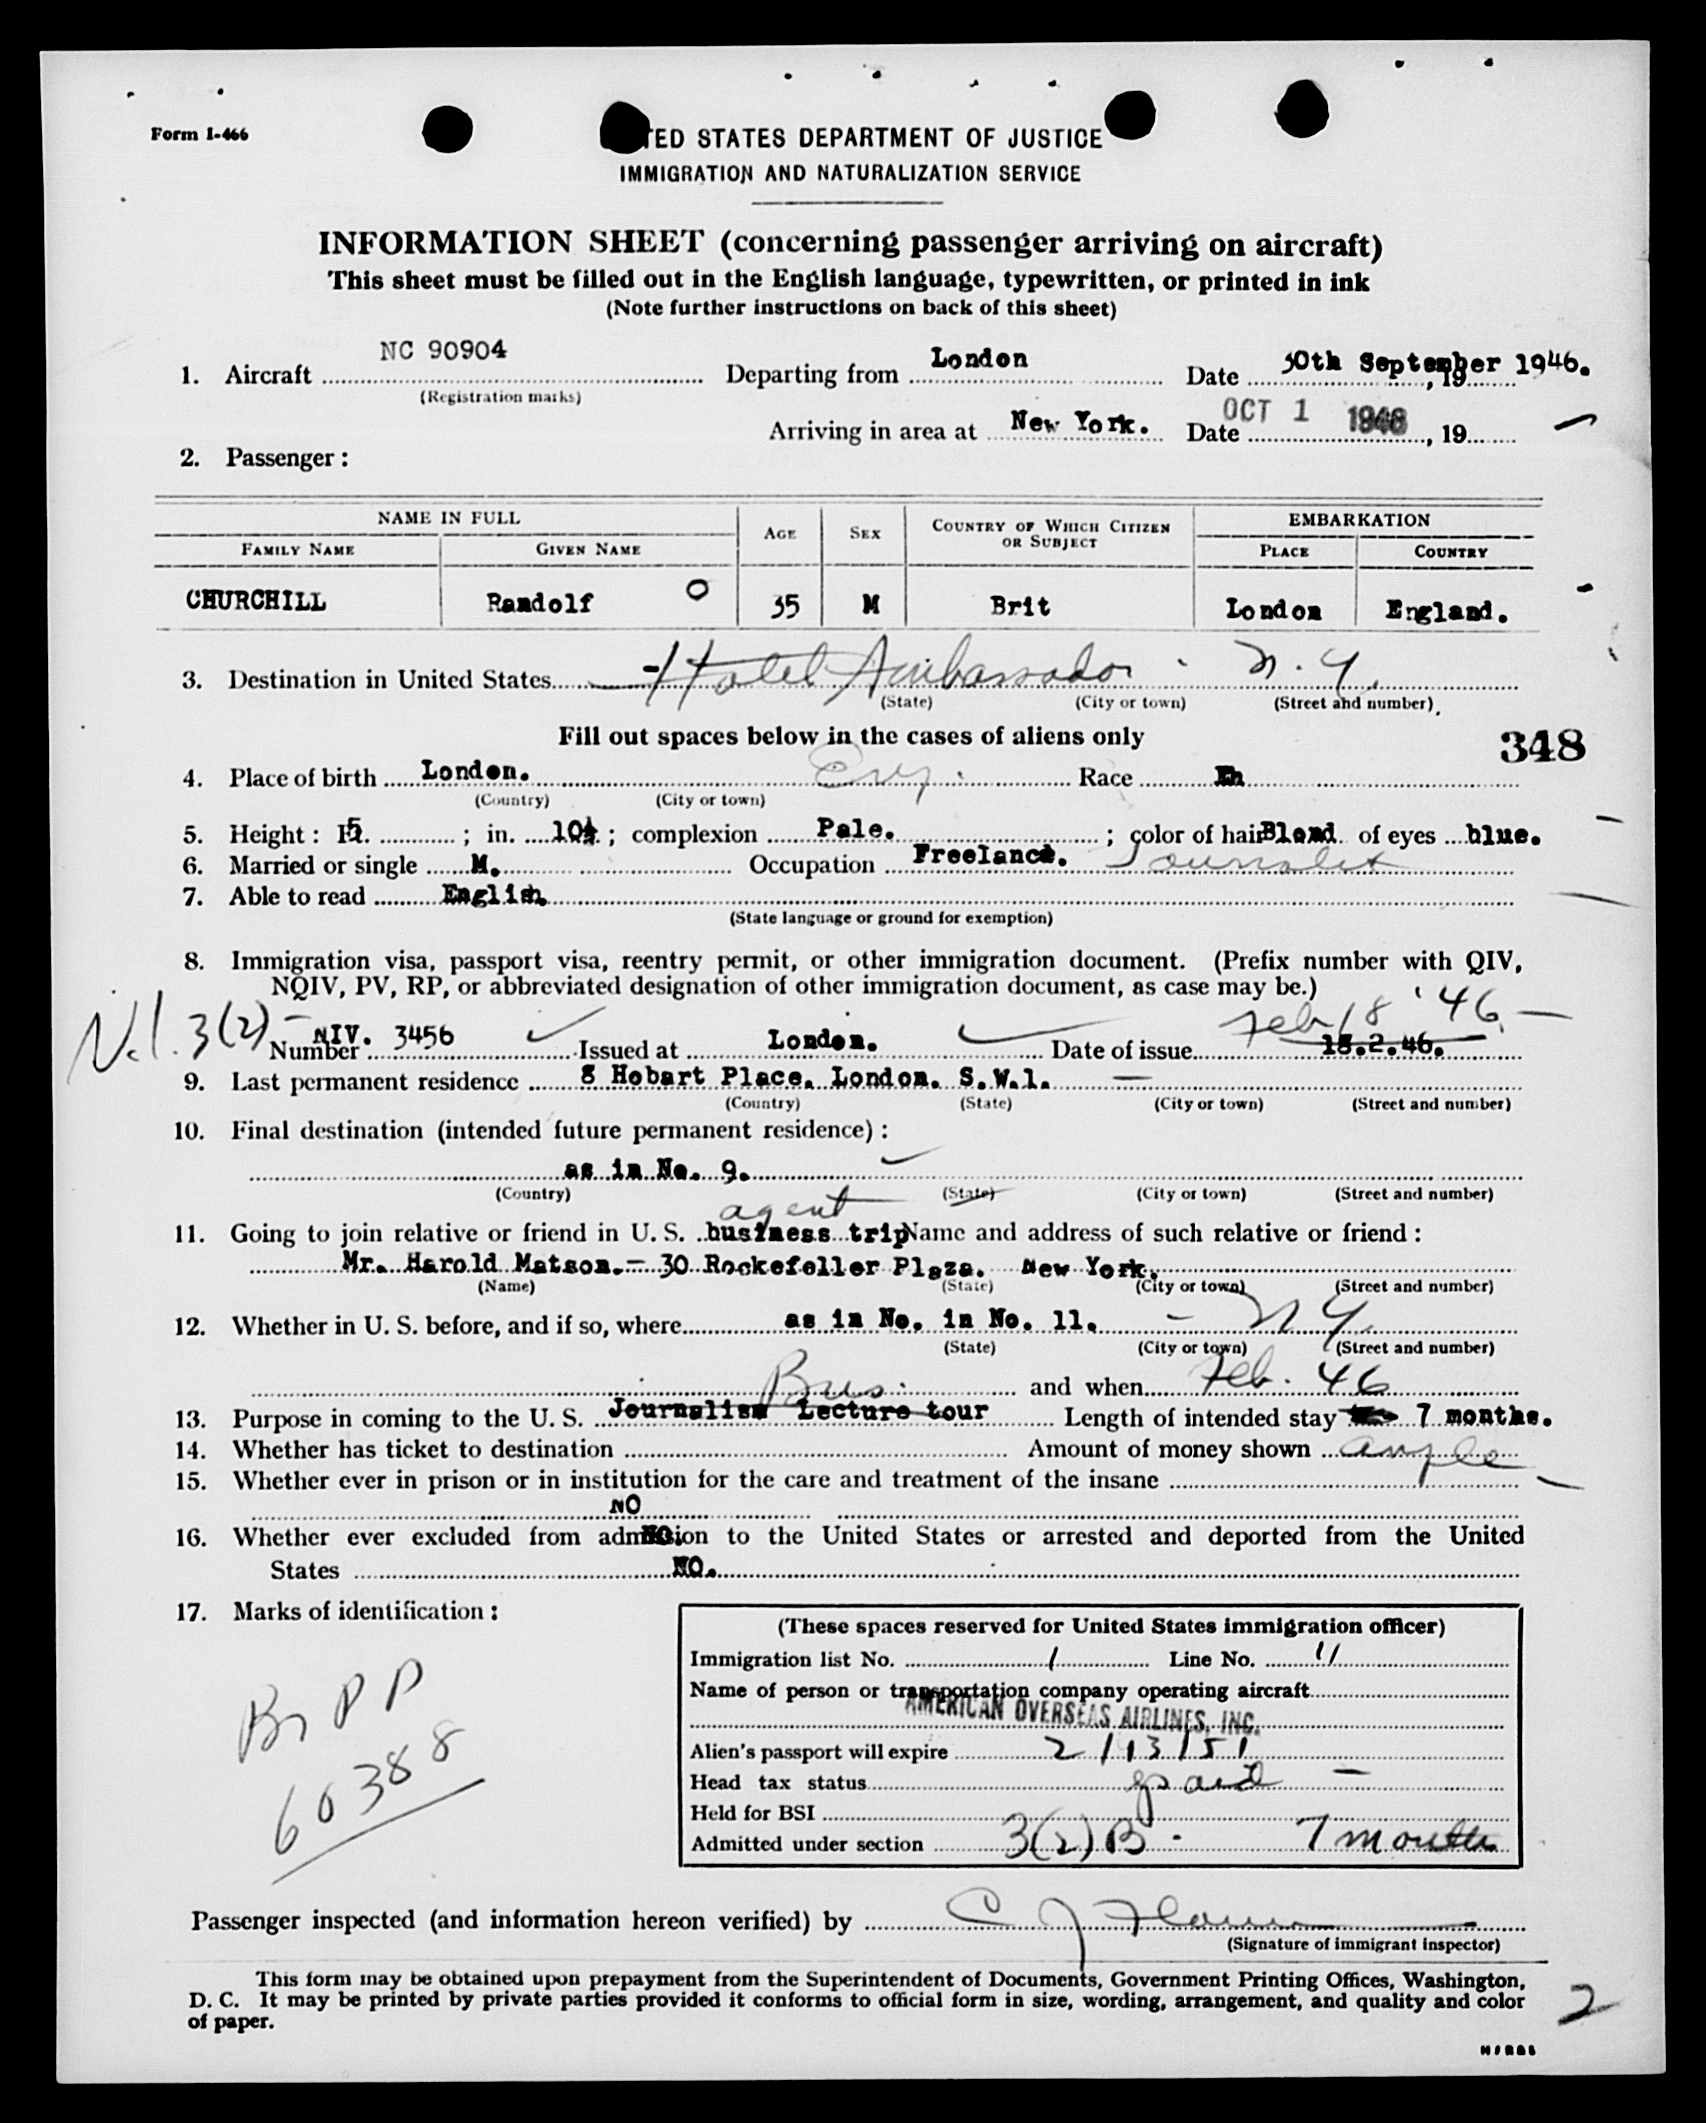 Form I-466
TED STATES DEPARTMENT OF JUSTICE
IMMIGRATION AND NATURALIZATION SERVICE
INFORMATION SHEET (concerning passenger arriving on aircraft)
This sheet must be filled out in the English language, typewritten, or printed in ink
(Note further instructions on back of this sheet)
1. Aircraft NC 90904 Departing from London Date 30th September 1946. , 19
(Registration marks)
Arriving in area at New York. Date OCT 1 1946 , 19
2. Passenger:
NAME IN FULL AGE SEX COUNTRY OF WHICH CITIZEN OR SUBJECT EMBARKATION
FAMILY NAME GIVEN NAME PLACE COUNTRY
CHURCHILL Randolf O 35 M Brit London England.
3. Destination in United States Hotel Ambassador N.Y.
(State) (City or town) (Street and number)
Fill out spaces below in the cases of aliens only
348
4. Place of birth London. Eng. Race En
(Country) (City or town)
5. Height: Ft. 5 ; in. 10½ ; complexion Pale. ; color of hair Blond of eyes blue.
6. Married or single M. Occupation Freelance. Journalist
7. Able to read English.
(State language or ground for exemption)
8. Immigration visa, passport visa, reentry permit, or other immigration document. (Prefix number with QIV,
NQIV, PV, RP, or abbreviated designation of other immigration document, as case may be.)
N.I. 3(2) Feb 18 '46
Number NIV. 3456 Issued at London. Date of issue 18.2.46.
9. Last permanent residence 8 Hobart Place. London. S.W.1.
(Country) (State) (City or town) (Street and number)
10. Final destination (intended future permanent residence):
as in No. 9.
(Country) (State) (City or town) (Street and number)
agent
11. Going to join relative or friend in U. S. business trip Name and address of such relative or friend:
Mr. Harold Matson.- 30 Rockefeller Plaza. New York.
(Name) (State) (City or town) (Street and number)
12. Whether in U. S. before, and if so, where as in No. in No. 11. - N.Y.
(State) (City or town) (Street and number)
Bus. and when Feb. 46
13. Purpose in coming to the U. S. Journalism Lecture tour Length of intended stay 7 months.
14. Whether has ticket to destination Amount of money shown ample
15. Whether ever in prison or in institution for the care and treatment of the insane
NO
16. Whether ever excluded from admission to the United States or arrested and deported from the United
NO.
States NO.
17. Marks of identification:
Br PP
60388
(These spaces reserved for United States immigration officer)
Immigration list No. 1 Line No. 11
Name of person or transportation company operating aircraft
AMERICAN OVERSEAS AIRLINES, INC.
Alien's passport will expire 2/13/51
Head tax status paid -
Held for BSI
Admitted under section 3(2)B. 7 months
Passenger inspected (and information hereon verified) by C J
(Signature of immigrant inspector)
This form may be obtained upon prepayment from the Superintendent of Documents, Government Printing Offices, Washington,
D. C. It may be printed by private parties provided it conforms to official form in size, wording, arrangement, and quality and color
of paper.
2